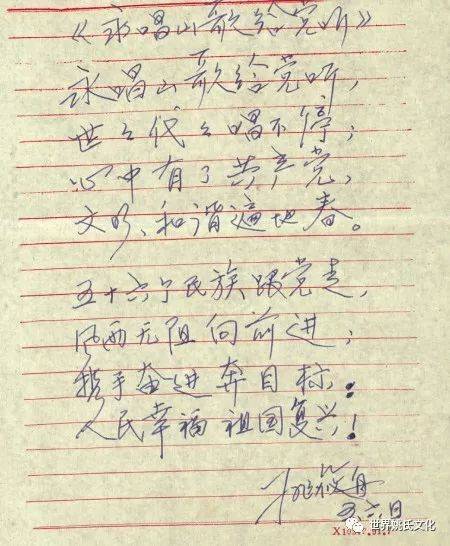 《永唱山歌给党听》
永唱山歌给党听，
世々代々唱不停；
心中有了共产党，
文明、和谐遍地春。
五十六个民族跟党走，
风雨无阻向前进；
携手奋进奔目标：
人民幸福祖国复兴！
姚筱舟
世界姚氏文化